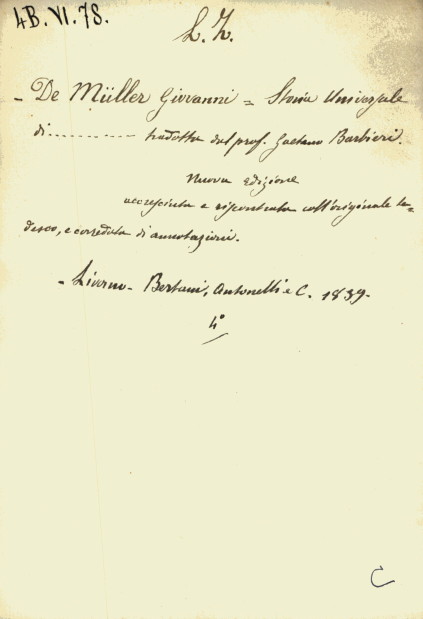 4B. VI. 78.
L. Z.
- De Müller Giovanni = Storia Universale
di ............ tradotta dal prof. Gaetano Barbieri.
nuova edizione
accresciuta e riscontrata coll'originale te=
desco, e corredata di annotazioni.
- Livorno - Bertani, Antonelli e C. 1839 -
4°
C